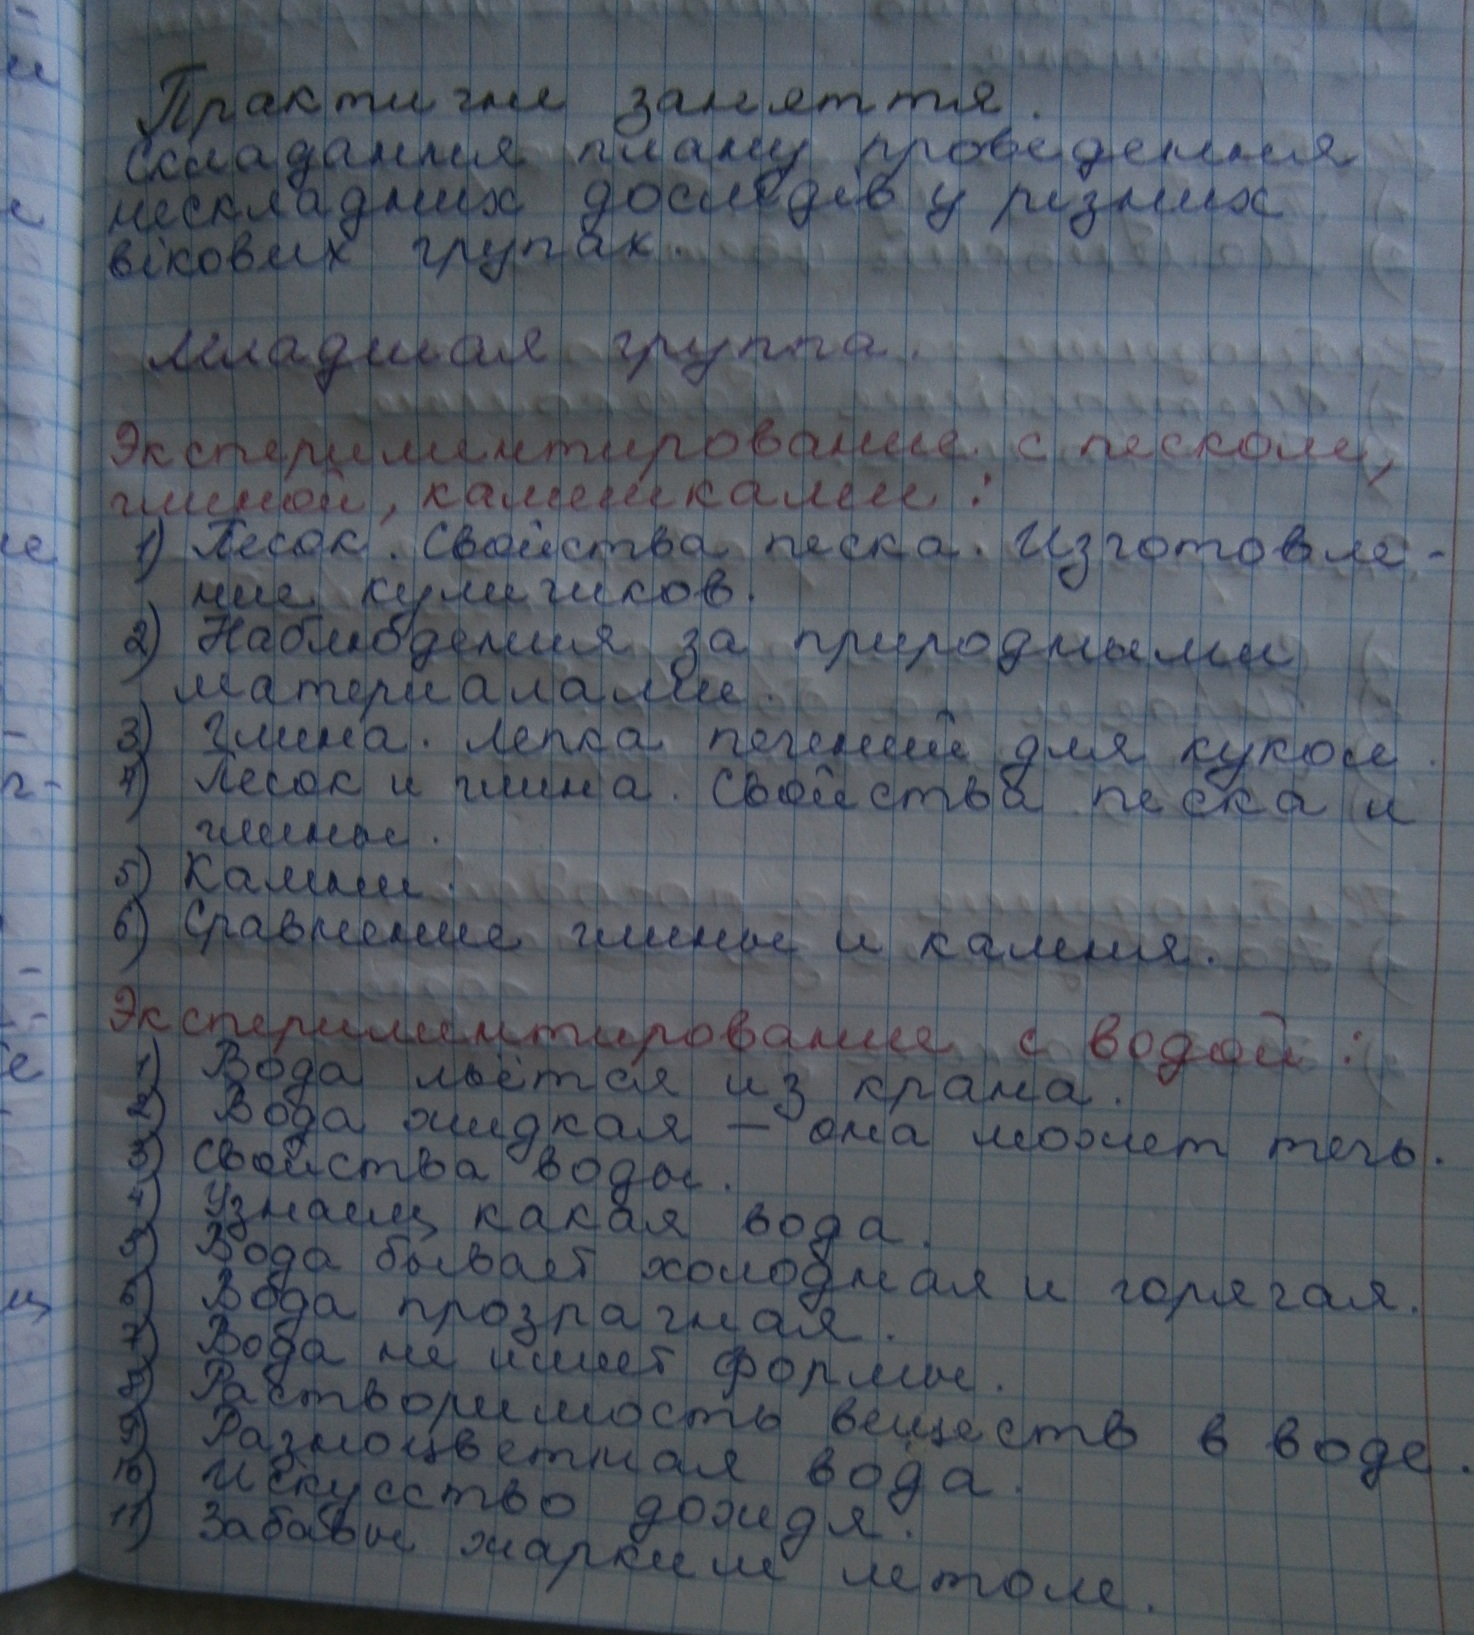 Практичне заняття.
Складання плану проведення
нескладних дослідів у різних
вікових групах.
Младшая группа.
Экспериментирование с песком,
глиной, камешками:
1) Песок. Свойства песка. Изготовле-
ние куличиков.
2) Наблюдения за природными
материалами.
3) Глина. Лепка печений для кукол.
4) Песок и глина. Свойства песка и
глины.
5) Камни.
6) Сравнение глины и камня.
Экспериментирование с водой:
1) Вода льётся из крана.
2) Вода жидкая – она может течь.
3) Свойства воды.
4) Узнаем, какая вода.
5) Вода бывает холодная и горячая.
6) Вода прозрачная.
7) Вода не имеет формы.
8) Растворимость веществ в воде.
9) Разноцветная вода.
10) Искусство дождя.
11) Забавы жарким летом.